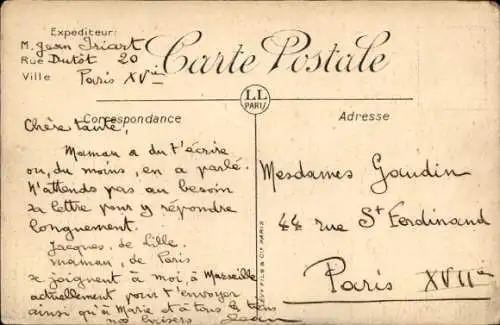 Expéditeur:
M. Jean Iriart
Rue Dutôt 20
Ville Paris XVième
Carte Postale
LL
PARIS
Correspondance
Adresse
Chère tante,
Maman a du t'écrire
ou, du moins, en a parlé.
N'attends pas au besoin
sa lettre pour y répondre
longuement.
Jacques, de Lille,
maman, de Paris
se joignent à moi, à Marseille
actuellement pour t'envoyer
ainsi qu'à Marie et à tous le tiens
nos baisers Jean
Mesdames Gaudin
44 rue St Ferdinand
Paris XVIIième
LEVY FILS & Cie PARIS